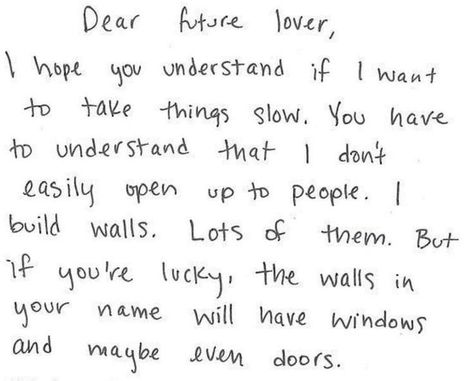 Dear future lover,
I hope you understand if I want
to take things slow. You have
to understand that I don't
easily open up to people. I
build walls. Lots of them. But
if you're lucky, the walls in
your name will have windows
and maybe even doors.